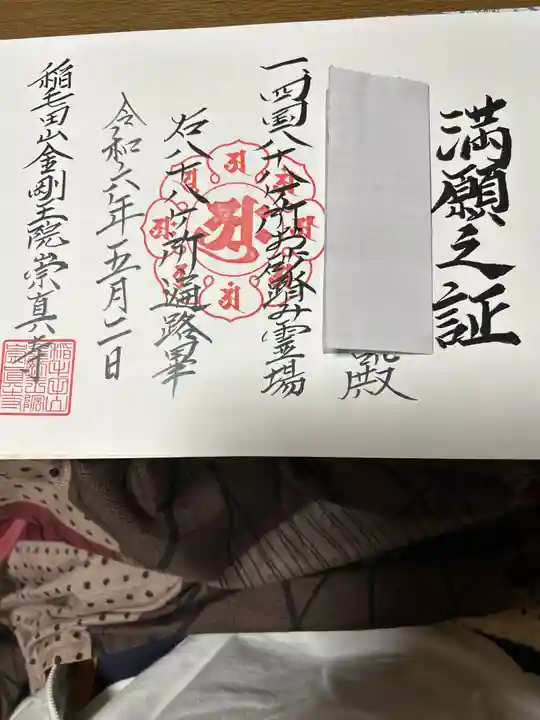 満願之証
殿
一、四国八十八ヶ所お砂踏み霊場
右八十八ヶ所遍路畢
令和六年五月二日
稲毛田山金剛王院崇真寺